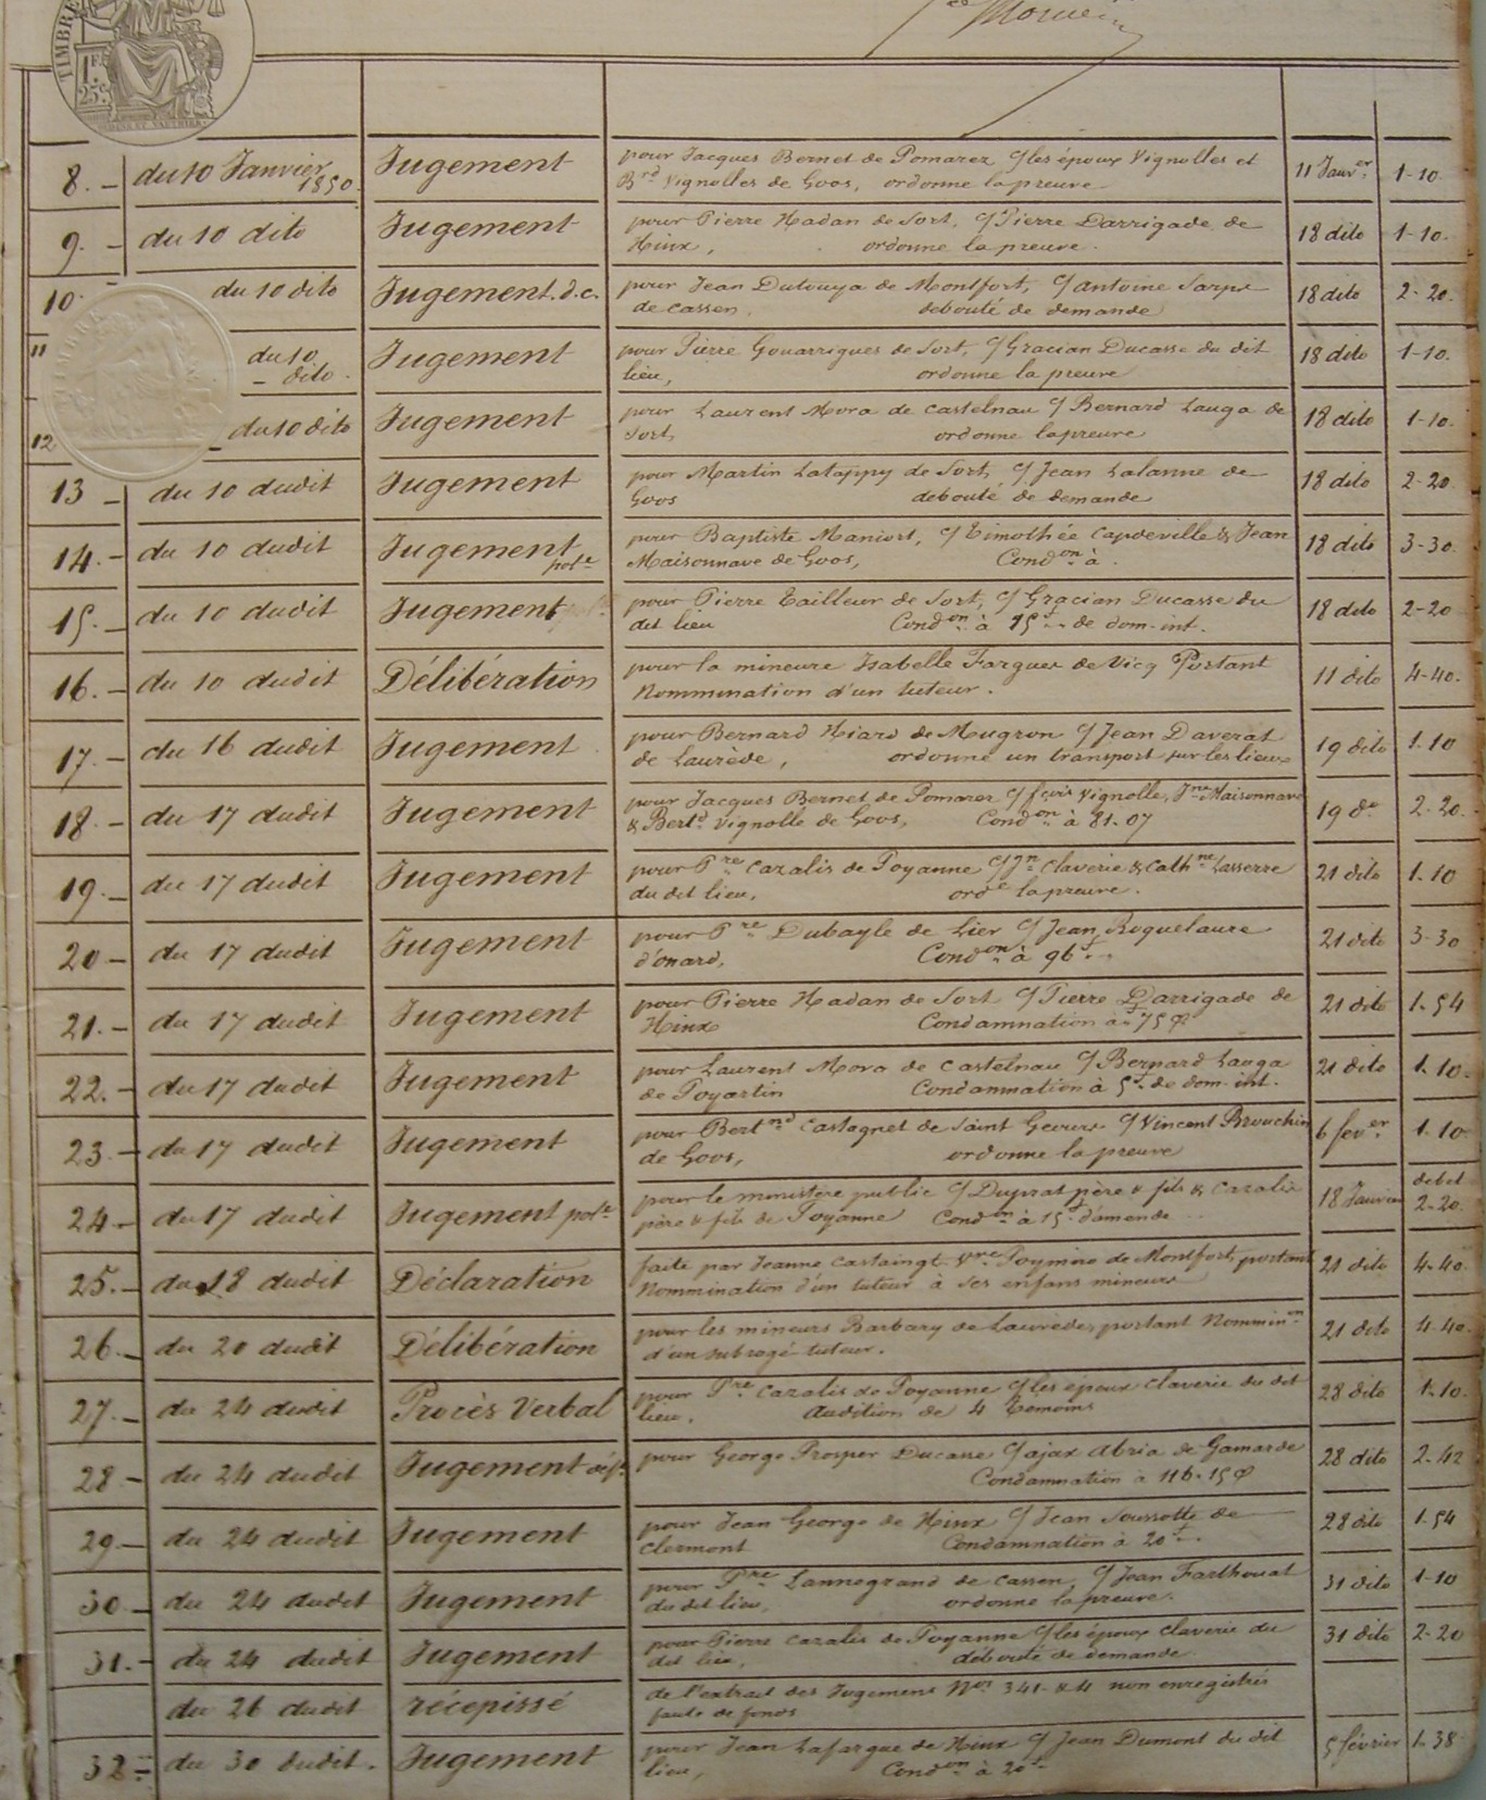 TIMBRE
1 F.
25 c.
8. - du 10 Janvier 1850. Jugement pour Jacques Bernet de Pomarez c/ les époux Vignolles et 11 Janv.er 1-10
B.rd Vignolles de Goos, ordonne la preuve
9. - du 10 dito Jugement pour Pierre Hadan de Sort, c/ Pierre Darrigade de 18 dito 1-10.
Hinx, ordonne la preuve.
10. du 10 dito Jugement. d.c. pour Jean Dutouya de Montfort, c/ antoine 18 dito 2-20.
de Cassen. debouté de demande
11 du 10 dito. Jugement pour Pierre Gouarrigues de Sort, c/ Gracian Ducasse du dit 18 dito 1-10.
lieu, ordonne la preuve
12 du 10 dito Jugement pour Laurent Mora de castelnau c/ Bernard Lauga de 18 dito 1-10.
Sort, ordonne la preuve
13 - du 10 dudit Jugement pour Martin Latappy de Sort, c/ Jean Lalanne de 18 dito 2-20
Goos debouté de demande
14. - du 10 dudit Jugement pour Baptiste c/ Timothée Capdeville & Jean 18 dito 3-30.
Maisonnave de Goos, Cond.on à.
15. - du 10 dudit Jugement pour Pierre Tailleur de Sort, c/ Gracian Ducasse du 18 dito 2-20
dit lieu Cond.on à 15 f. de dom-int.
16. - du 10 dudit Délibération pour la mineure Isabelle Fargues de Vicq Portant 11 dito 4-40.
Nommination d'un tuteur.
17. - du 16 dudit Jugement pour Bernard Hiard de Mugron c/ Jean Daverat 19 dito 1-10
de Laurède, ordonne un transport sur les lieux
18. - du 17 dudit Jugement pour Jacques Bernet de Pomarez c/ Vignolle, J.ne Maisonnave 19 d° 2-20.
& Bert.d Vignolle de Goos, Cond.on à 81-07
19. - du 17 dudit Jugement pour P.re Cazalis de Poyanne c/ J.n Claverie & Cath.ne Lasserre 21 dito 1-10
du dit lieu, ord.e la preuve.
20 - du 17 dudit Jugement pour P.re Dubayle de Lier c/ Jean Roquelaure 21 dito 3-30
d'onard, Cond.on à 96 f.
21. - du 17 dudit Jugement pour Pierre Hadan de Sort c/ Pierre Darrigade de 21 dito 1-54
Hinx Condamnation à
22. - du 17 dudit Jugement pour Laurent Mora de Castelnau c/ Bernard Lauga 21 dito 1-10.
de Poyartin Condamnation à 5 f. de dom-int.
23. - du 17 dudit Jugement pour Bert.nd Castagnet de Saint Geours c/ Vincent Brouchin 6 fev.er 1-10
de Goos, ordonne la preuve
24 - du 17 dudit Jugement pol.ce pour le ministère public c/ Duprat père & fils & Cazalis 18 Janvier debet 2-20.
père & fils de Poyanne Cond.on à 15 f. d'amende
25. - du 18 dudit Déclaration faite par Jeanne Castaingt V.ve de Montfort, portant 21 dito 4-40
Nommination d'un tuteur à ses enfans mineurs
26. - du 20 dudit Délibération pour les mineurs Barbary de Laurède, portant Nommin.on 21 dito 4-40.
d'un subrogé tuteur.
27. - du 24 dudit Procès Verbal pour P.re Cazalis de Poyanne c/ les époux Claverie du dit 28 dito 1-10.
lieu. Audition de 4 témoins
28 - du 24 dudit Jugement pour George Prosper Ducasse c/ ajax Abria de Gamarde 28 dito 2-42
Condamnation à 116-15
29. - du 24 dudit Jugement pour Jean George de Hinx c/ Jean Soussotte de 28 dito 1-54
Clermont Condamnation à 20 f.
30 - du 24 dudit Jugement pour P.re Lannegrand de Cassen, c/ Jean Farthouat 31 dito 1-10
du dit lieu, ordonne la preuve.
31. - du 24 dudit Jugement pour Pierre Cazalis de Poyanne c/ les époux Claverie du 31 dito 2-20
dit lieu, débouté de demande
du 26 dudit récepissé de l'extrait des Jugement N.os 341 & 4 non enregistrés
faute de fonds
32 - du 30 dudit. Jugement pour Jean Lafargue de Hinx c/ Jean Dumont du dit 5 février 1-38
lieu, Cond.on à 20 f.